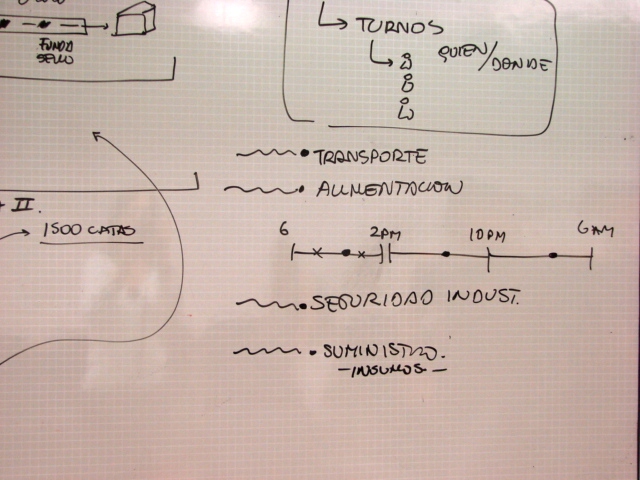 FUNDA
SELLO
TURNOS
QUIEN/DONDE
• TRANSPORTE
• ALIMENTACION
II.
1500 CAJAS
6 2PM 10PM 6AM
• SEGURIDAD INDUST.
• SUMINISTRO.
- INSUMOS -